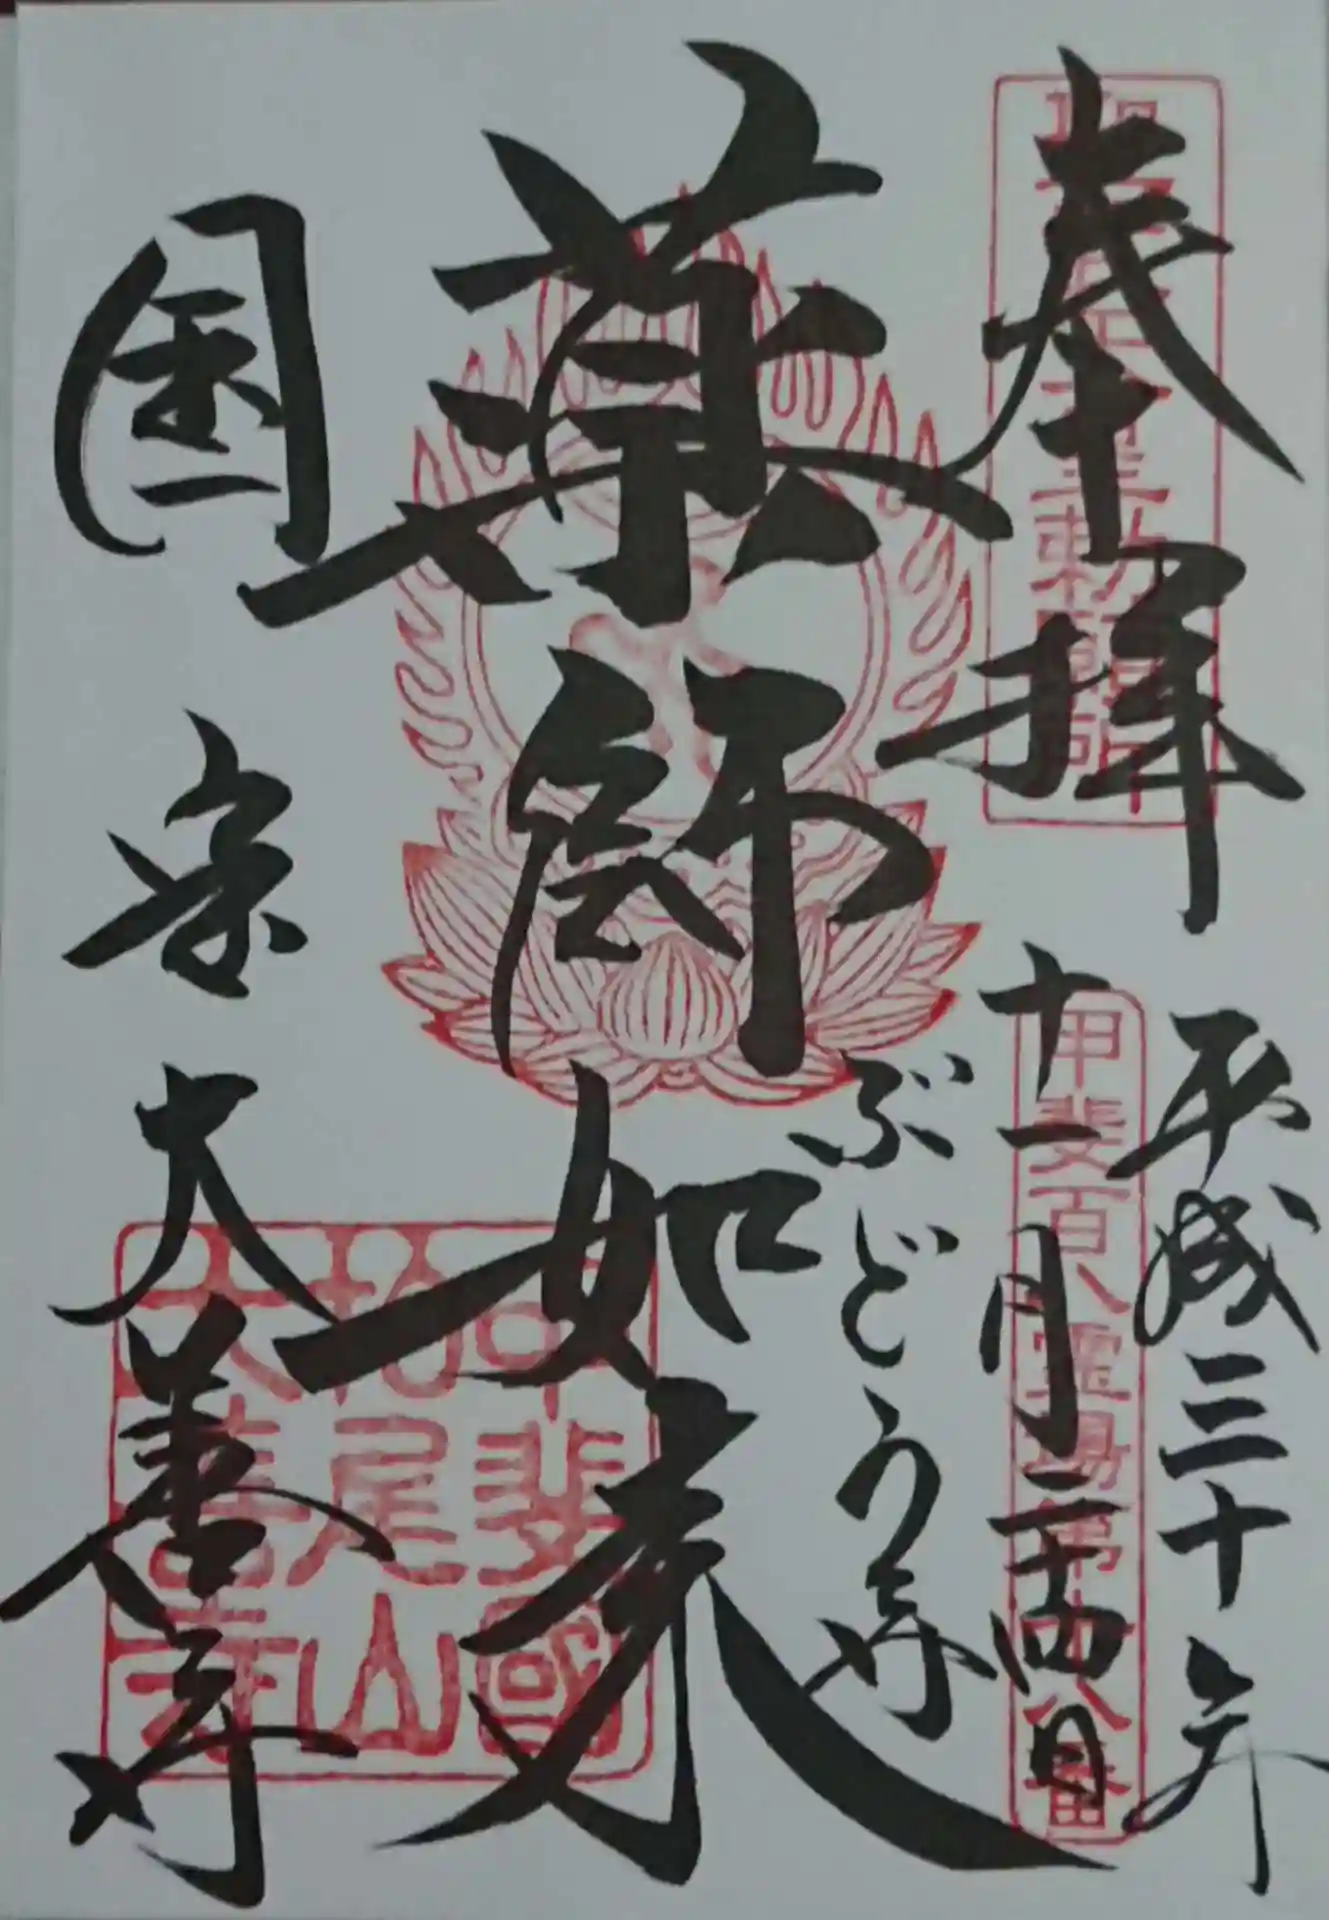 奉拝
平成三十年
十一月二十四日
ぶどう寺
薬師如来
国宝大善寺
甲斐百八霊場第十八番
甲斐國
柏尾山
大善寺